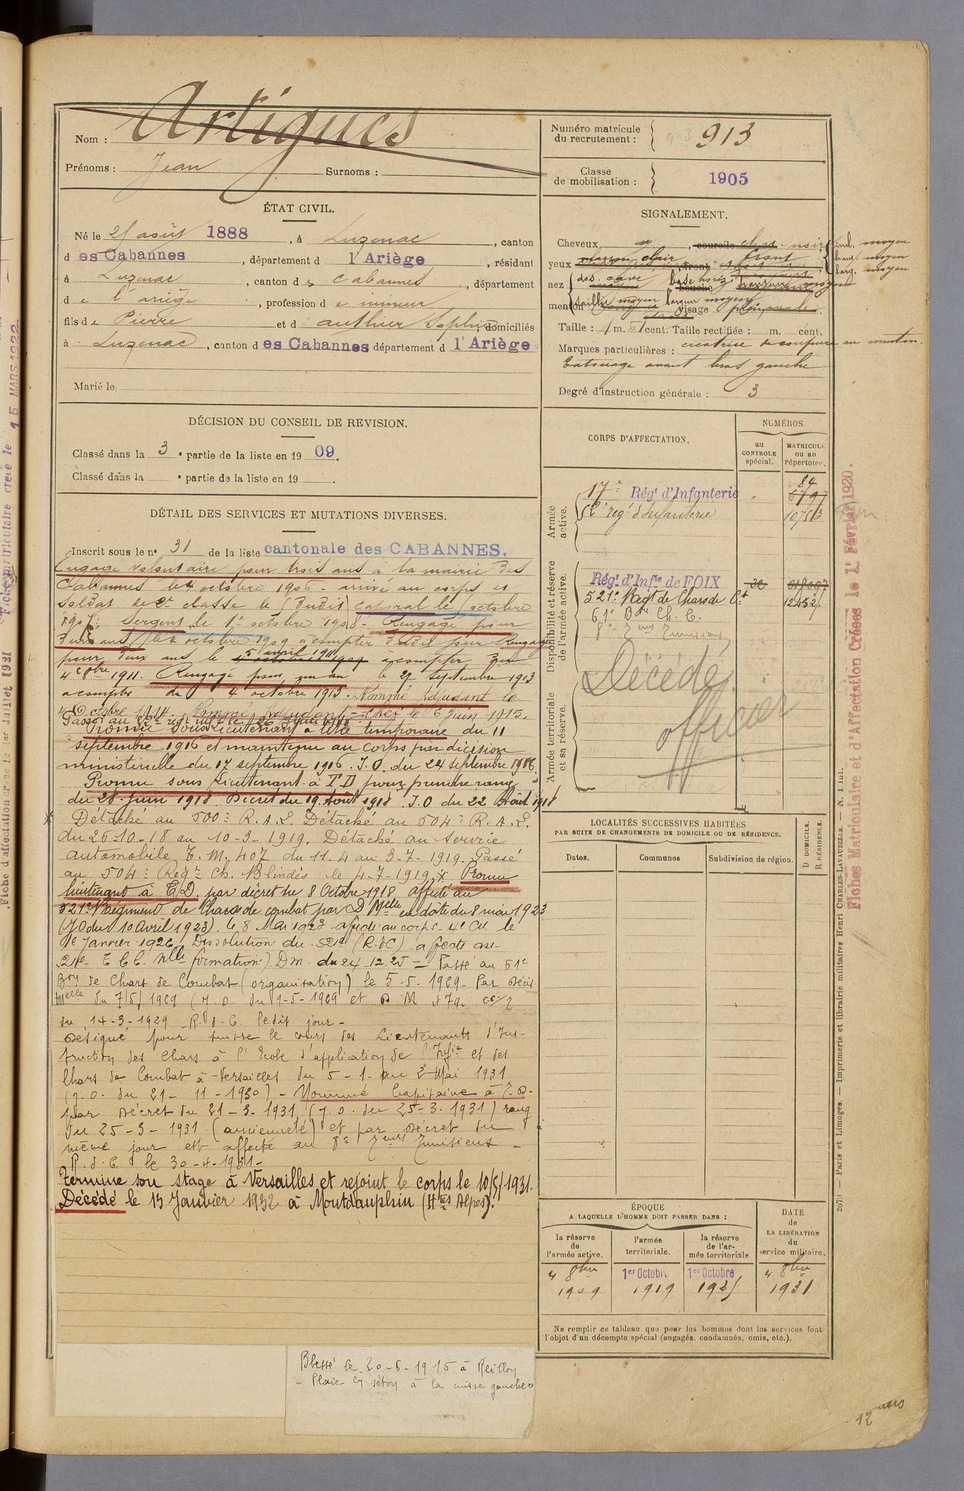 Nom : Artigues
Prénoms : Jean Surnoms :
ÉTAT CIVIL.
Né le août 1888, à Luzenac, canton
d es Cabannes, département d l'Ariège, résidant
à Luzenac, canton d es Cabannes, département
d e l'ariège, profession d e mineur
fils d e Pierre et d authier Sophie domiciliés
à Luzenac, canton d es Cabannes département d l'Ariège
Marié le
DÉCISION DU CONSEIL DE REVISION.
Classé dans la 3e partie de la liste en 1909.
Classé dans la e partie de la liste en 19
DÉTAIL DES SERVICES ET MUTATIONS DIVERSES.
Inscrit sous le n° 31 de la liste cantonale des CABANNES.
Engagé volontaire pour trois ans à la mairie des
Cabannes le 4 octobre 1906 arrivé au corps et
soldat de 2e classe le dit caporal le octobre
1907. Sergent le 1er octobre 1908. Rengagé pour
deux ans le octobre 1909 à compter dudit jour Rengagé
pour deux ans le 5 avril 1911 à compter du
4 8bre 1911. Rengagé pour un an le 29 septembre 1913
à compter du 4 octobre 1913. Nommé adjudant le
octobre 1914. Nommé adjudant-chef le 6 juin 1915.
Passé au
Promu sous lieutenant à titre temporaire du 11
septembre 1916 et maintenu au corps par décision
ministérielle du 17 septembre 1916. J.O. du 24 septembre 1916.
Promu sous lieutenant à T.D pour prendre rang
du 28 juin 1918. Décret du 19 Août 1918. J.O du 22 Août 1918
Détaché au 500e R.A.L. Détaché au 504e R.A.L.
du 26-10-18 au 10-3-1919. Détaché au service
automobile T.M. 407 du 11-4 au 3-7-1919. Passé
au 504e Régt Ch. Blindés le 4-7-1919. X Promu
lieutenant à T.D. par décret du 8 Octobre 1918 affecté au
521e Régiment de Chars de combat par D Mlle en date du 8 mai 1923
(J.O du 10 Avril 1923). le 8 Mai 1923 affecté au corps le
1er Janvier 1926, Dissolution du 521e (R.d.C) affecté au
Nlle formation) Dm. du 24 12.25 = Passé au 51e
Bon de Chars de Combat (organisation) le 5-5-1929. Par Décis.
Mlle du 7/5/1929 (J.O. du 9-5-1929 et D M
du 14-3-1929 R.d.C. le dit jour -
Désigné pour suivre le cours des Lieutenants d'Ins-
truction des Chars à l'Ecole d'application de l'Infie et des
Chars de Combat à Versailles du 5-1- au 2 Mai 1931
(J.O. du 21-11-1930) - Nommé Capitaine à T.D.
par Décret du 21-3-1931 (J.O. du 25-3-1931) rang
du 25-3-1931 (ancienneté) et par Décret du
même jour est affecté au 8e Zouaves Tunisiens -
R.d.C. le 30-4-1931-
Termine son stage à Versailles et rejoint le corps le 10/5/1931.
Décédé le 15 Janvier 1932 à Montdauphin (Htes Alpes).
Blessé le 20-6-1915 à Reillon
"Plaie en séton à la cuisse gauche"
Numéro matricule du recrutement : 913
Classe de mobilisation : 1905
SIGNALEMENT.
Cheveux noir
yeux marron clair front
nez dos cave base horiz.
menton saillie moyen largeur moyenne visage
Taille : 1 m. cent. Taille rectifiée : m. cent.
Marques particulières : cicatrice de coupure au menton.
Tatouage avant bras gauche
Degré d'instruction générale : 3
CORPS D'AFFECTATION.
NUMÉROS
au CONTROLE spécial.
MATRICULE ou au répertoire.
Armée active.
17e Régt d'Infanterie 84
régt d'infanterie
Disponibilité et réserve de l'armée active.
Régt d'Infie de FOIX
521e Régt de Chars de Ct
8e Zouaves Tunisiens
Armée territoriale et sa réserve.
Décédé.
officier
LOCALITÉS SUCCESSIVES HABITÉES
PAR SUITE DE CHANGEMENTS DE DOMICILE OU DE RÉSIDENCE.
Dates. Communes Subdivision de région. D DOMICILE. R RÉSIDENCE.
ÉPOQUE
A LAQUELLE L'HOMME DOIT PASSER DANS :
la réserve de l'armée active.
l'armée territoriale.
la réserve de l'armée territoriale
DATE de LA LIBÉRATION du service militaire.
4 8bre 1909
1er Octobre 1919
1er Octobre 1925
4 8bre 1931
Ne remplir ce tableau que pour les hommes dont les services font
l'objet d'un décompte spécial (engagés, condamnés, omis, etc.).
Fiches Matriculaire et d'Affectation Créées le 1er Février 1920.
Paris et Limoges. — Imprimerie et librairie militaires Henri CHARLES-LAVAUZELLE.
12